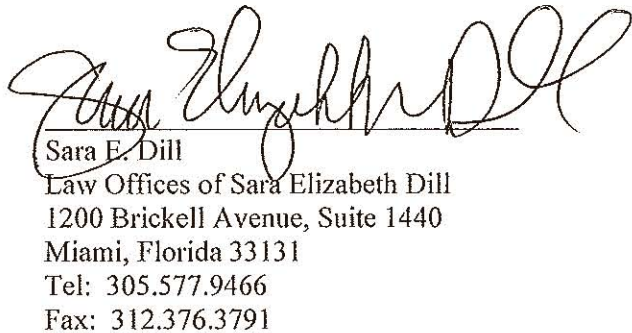 Sara Elizabeth Dill
Sara E. Dill
Law Offices of Sara Elizabeth Dill
1200 Brickell Avenue, Suite 1440
Miami, Florida 33131
Tel: 305.577.9466
Fax: 312.376.3791